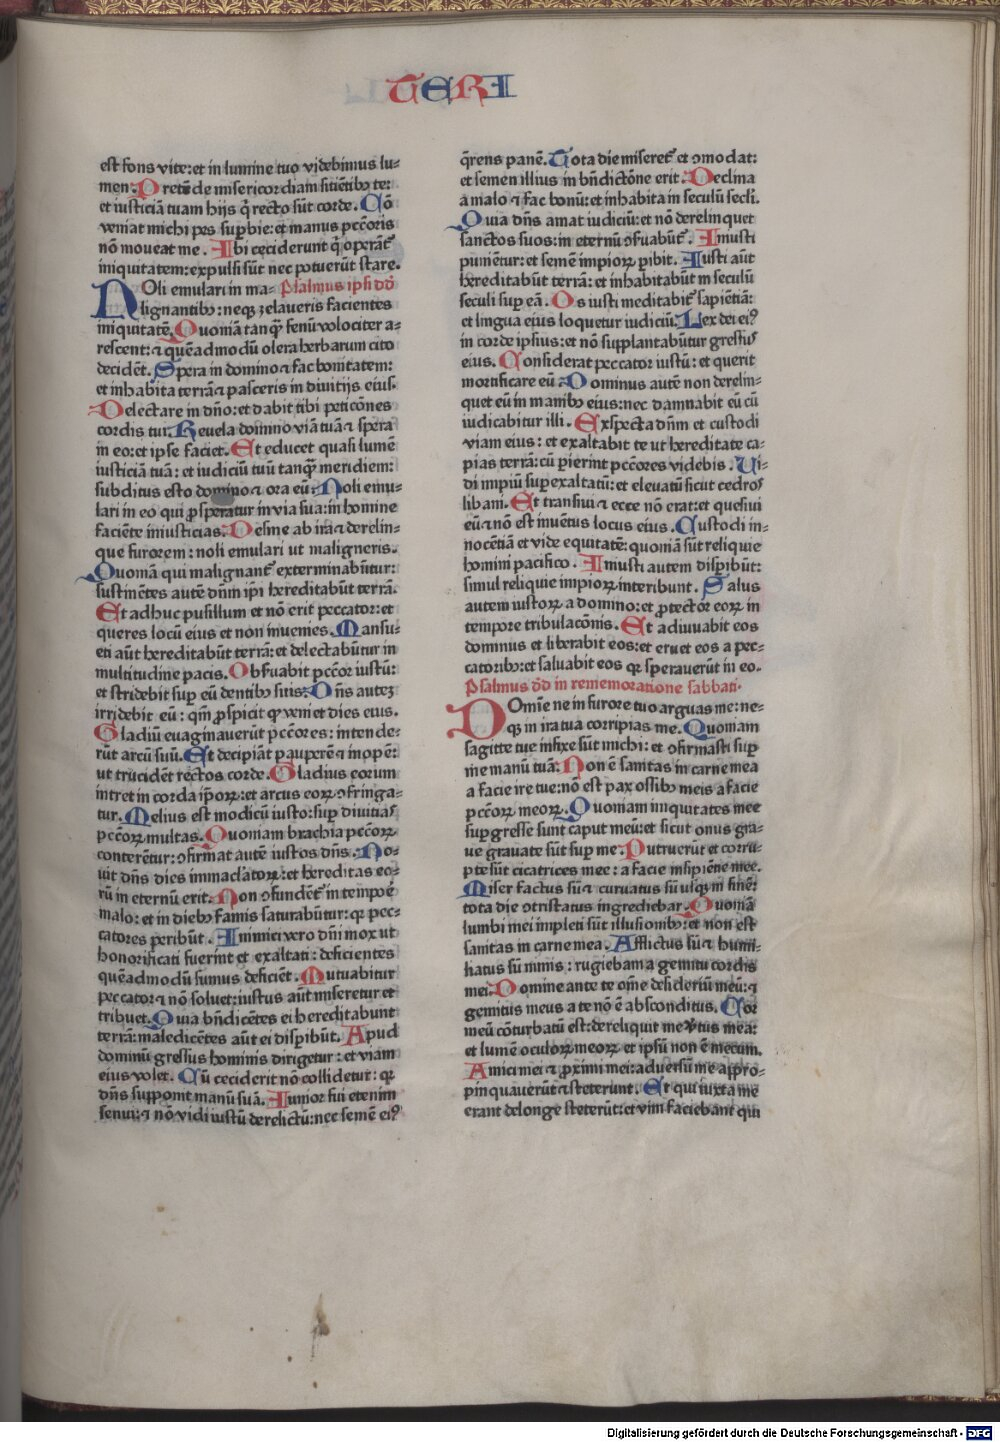 TERI
est fons vite: et in lumine tuo videbimus lu⸗
men. Pretẽde misericordiam sciẽtibꝰ te:
et iusticiã tuam hijs q̃ recto sũt corde. Nõ
veniat michi pes supbie: et manus pccõris
nõ moveat me. Ibi ceciderunt q̃ operãt᷑
iniquitatem: expulsi sũt nec potuerũt stare.
NOli emulari in ma⸗ Psalmus ipsi dd̃
lignantibꝰ: neqꝫ zelaveris facientes
iniquitatẽ. Quoniã tanq̃ fenũ velociter a⸗
rescent: ⁊ quẽadmodũ olera herbarum cito
decidẽt. Spera in domino ⁊ fac bonitatem:
et inhabita terrã ⁊ pasceris in divitijs eius.
Delectare in dño: et dabit tibi peticiões
cordis tui. Revela domino viã tuã ⁊ spera
in eo: et ipse faciet. Et educet quasi lumẽ
iusticiã tuã: et iudiciũ tuũ tanq̃ meridiem:
subditus esto domino ⁊ ora eũ. Noli emu⸗
lari in eo qui ꝓsperatur in via sua: in homine
faciẽte iniusticias. Desine ab ira ⁊ derelin⸗
que furorem: noli emulari ut maligneris.
Quoniã qui malignant᷑ exterminabũtur:
sustinẽtes autẽ dñm ipi hereditabũt terrã.
Et adhuc pusillum et nõ erit peccator: et
queres locũ eius et non invenies. Mansu⸗
eti aũt hereditabũt terrã: et delectabũtur in
multitudine pacis. Obsuabit pccõr iustũ:
et stridebit sup eũ dentibꝰ suis. Dñs auteꝫ
irridebit eũ: qm̃ ꝓspicit ꝙ veniet dies eius.
Gladiũ evaginaverũt pccõres: intende⸗
rũt arcũ suũ. Et decipiãt pauperẽ ⁊ inopẽ:
ut trucidẽt rectos corde. Gladius eorum
intret in corda ip̃orꝝ: et arcus eorꝝ ꝯfringa⸗
tur. Melius est modicũ iusto: sup divitias
pccõrꝝ multas. Quoniam brachia pccõrꝝ
conterẽtur: ꝯfirmat autẽ iustos dñs. No⸗
vit dñs dies immac̃latorꝝ: et hereditas eo⸗
rũ in eternũ erit. Non ꝯfundẽt᷑ in tempoẽ
malo: et in diebꝰ famis saturabũtur: qꝛ pec⸗
catores peribũt. Inimici vero dñi mox ut
honorificati fuerint et exaltati: deficientes
quẽadmodũ fumus deficiẽt. Mutuabitur
peccator ⁊ nõ solvet: iustus aũt miseretur et
tribuet. Quia bñdicẽtes ei hereditabunt
terrã: maledicẽtes aũt ei disꝑibũt. Apud
dominũ gressus hominis dirigetur: et viam
eius volet. Cũ ceciderit nõ collidetur: qꝛ
dñs supponit manũ suã. Iunior fui etenim
senui: ⁊ nõ vidi iustũ derelictũ: nec semẽ eiꝰ
q̃rens panẽ. Tota die miseret᷑ et ꝯmodat:
et semen illius in bñdictõne erit. Declina
a malo ⁊ fac bonũ: et inhabita in seculũ secĩi.
Quia dñs amat iudiciũ: et nõ derelinquet
sanctos suos: in eternũ ꝯsuabũt᷑. Iniusti
punientur: et semẽ impiorꝝ ꝑibit. Iusti aũt
hereditabũt terrã: et inhabitabũt in seculũ
seculi sup eã. Os iusti meditabit᷑ sapiẽtiã:
et lingua eius loquetur iudiciũ. Lex dei eiꝰ
in corde ipsius: et nõ supplantabũtur gressus
eius. Considerat peccator iustũ: et querit
mortificare eũ. Dominus autẽ non derelin⸗
quet eũ in manibꝰ eius: nec damnabit eũ cũ
iudicabitur illi. Exspecta dñm et custodi
viam eius: et exaltabit te ut hereditate ca⸗
pias terrã: cũ pierint pccõres videbis. Vi⸗
di impiũ supexaltatũ: et elevatũ sicut cedros
libani. Et transivi ⁊ ecce nõ erat: et quesivi
eũ ⁊ nõ est invẽtus locus eius. Custodi in⸗
nocẽtiã et vide equitatẽ: quoniã sũt reliquie
homini pacifico. Iniusti autem disꝑibũt:
simul reliquie impiorꝝ interibunt. Salus
autem iustorꝝ a domino: et ꝓtector eorꝝ in
tempore tribulacõnis. Et adiuvabit eos
dominus et liberabit eos: et eruet eos a pec⸗
catoribꝰ: et salvabit eos qꝛ speraverũt in eo.
Psalmus dd̃ in rememoratione sabbati.
DOmĩe ne in furore tuo arguas me: ne⸗
qꝫ in ira tua corripias me. Quoniam
sagitte tue infixe sũt michi: et ꝯfirmasti sup
me manũ tuã. Non ẽ sanitas in carne mea
a facie ire tue: nõ est pax ossibꝰ meis a facie
pccõrꝝ meorꝝ. Quoniam iniquitates mee
supgresse sunt caput meũ: et sicut onus gra⸗
ve gravate sũt sup me. Putruerũt et corru⸗
pte sũt cicatrices mee: a facie insipiẽtie mee.
Miser factus sũ ⁊ curvatus sũ usqꝫ in finẽ:
tota die ꝯtristatus ingrediebar. Quoniã
lumbi mei impleti sũt illusionibꝰ: et non est
sanitas in carne mea. Afflictus sũ ⁊ humi⸗
liatus sũ nimis: rugiebam a gemitu cordis
mei. Domine ante te om̃e desideriũ meũ: ⁊
gemitus meus a te nõ ẽ absconditus. Cor
meũ cõturbatũ est: dereliquit me v̾tus mea:
et lumẽ oculorꝝ meorꝝ et ipsũ non ẽ mecum.
Amici mei ⁊ ꝓximi mei: adversũ me appro⸗
pinquaverũt ⁊ steterunt. Et qui iuxta me
erant de longe steterũt: et vim faciebant qui
Digitalisierung gefördert durch die Deutsche Forschungsgemeinschaft - DFG